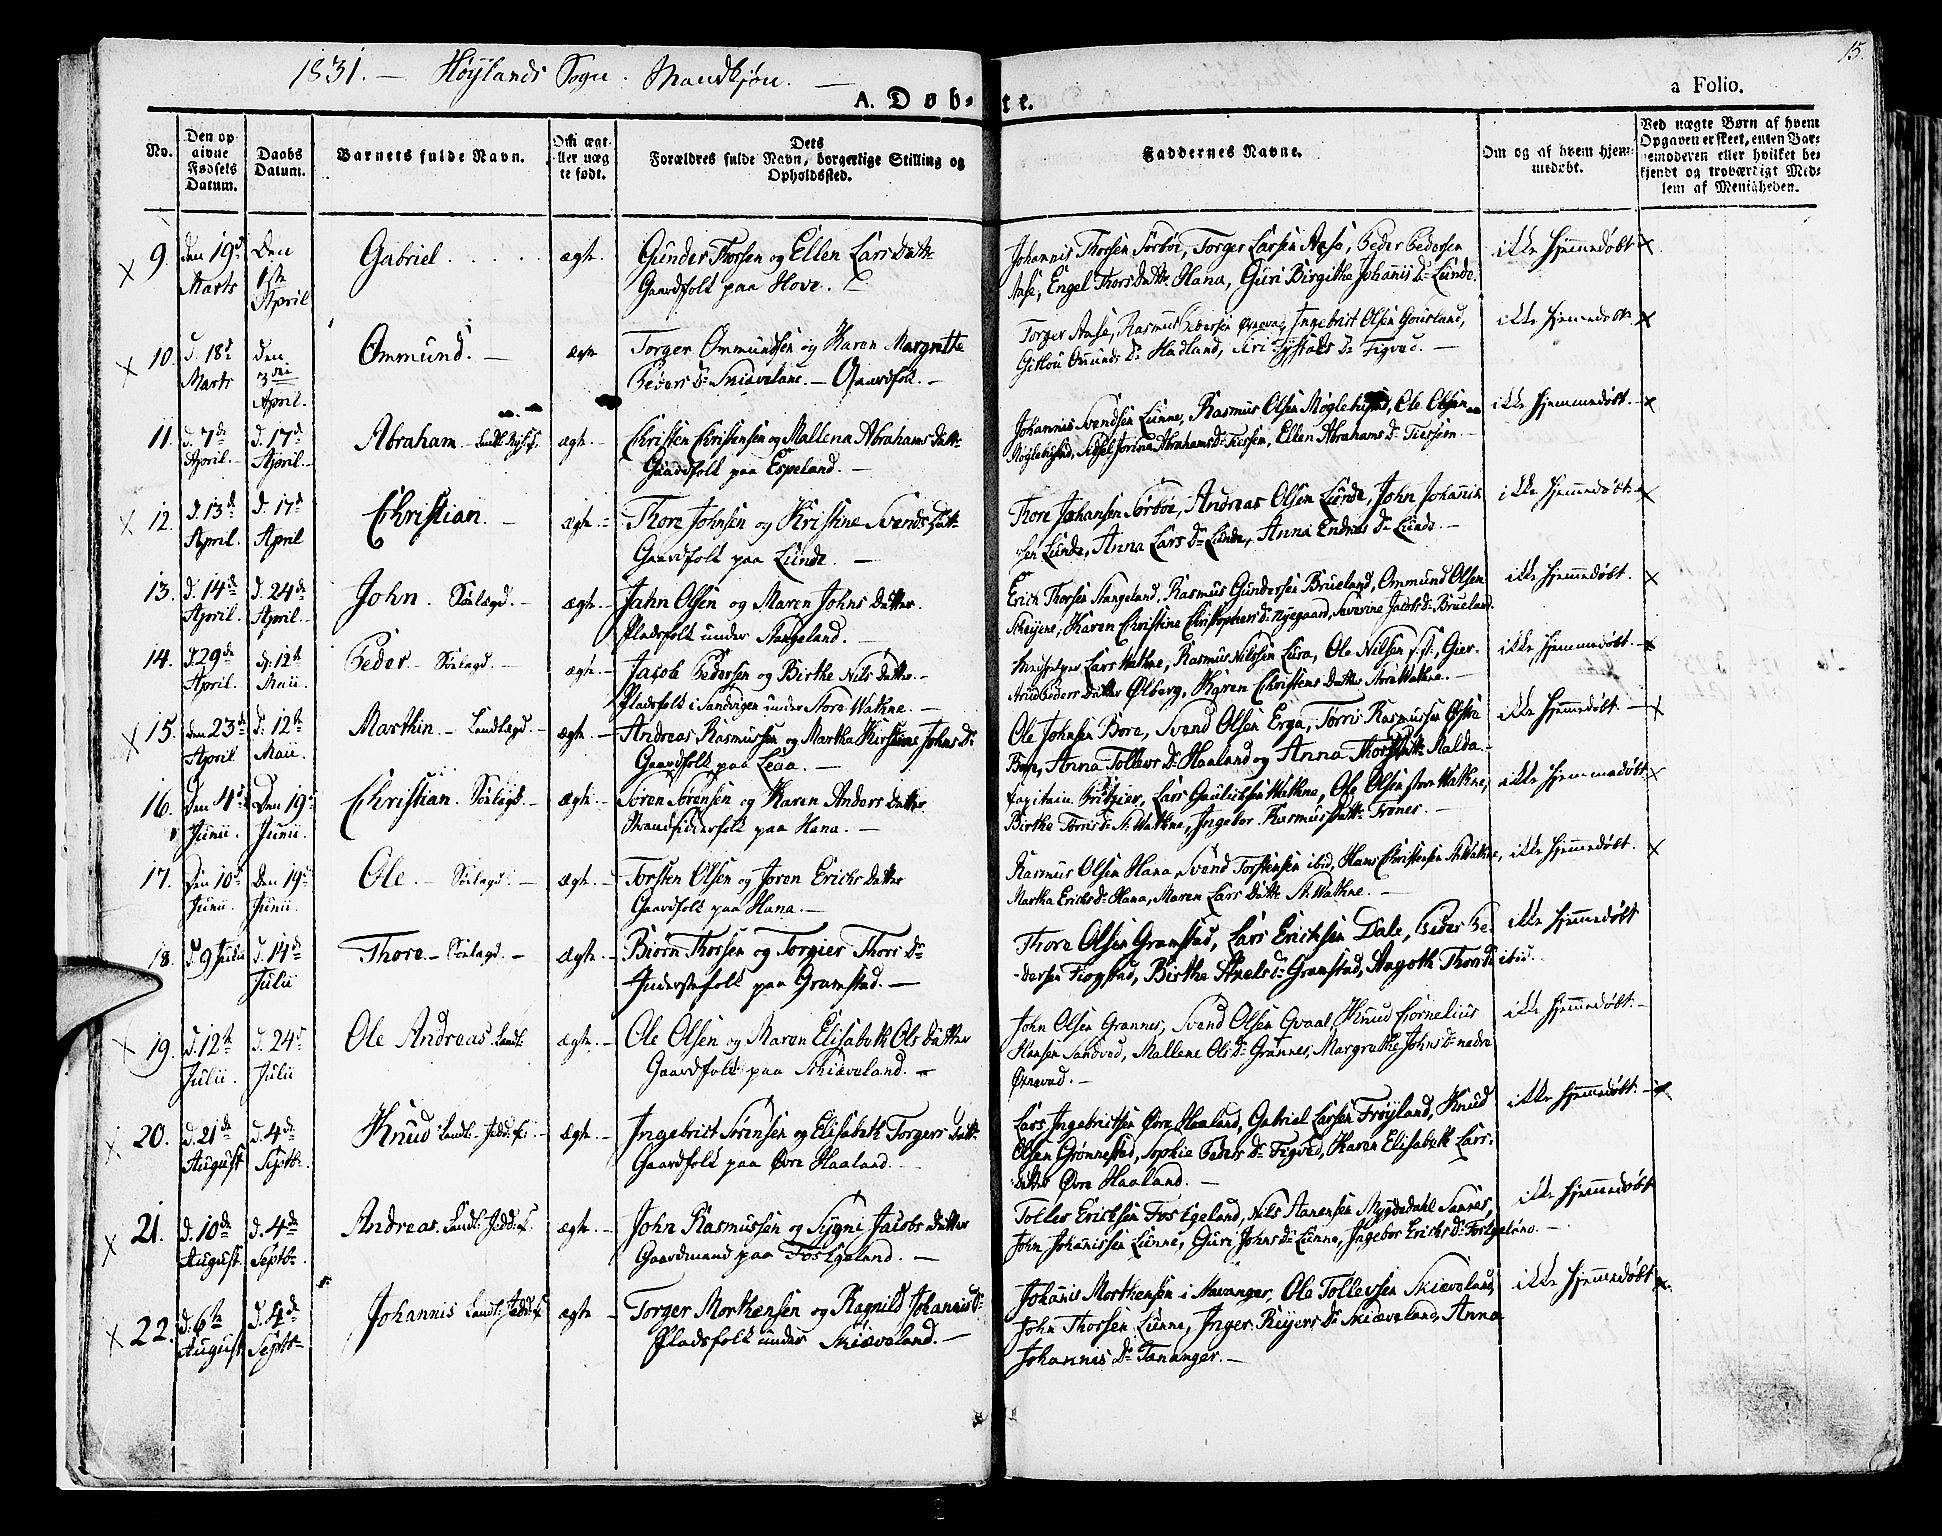 15.
1831. — Höylands Sogn. Mandkjøn. —
A. Døb- te.
a Folio.
No.
Den op-
givne
Fødsels
Datum.
Daabs
Datum.
Barnets fulde Navn.
Om ægt
ller uæg
te født.
Dets
Forældres fulde Navn, borgerlige Stilling og
Opholdssted.
Faddernes Navne.
Om og af hvem hjem-
medøbt.
Ved uægte Børn af hvem
Opgaven er skeet, enten Bar-
nemoderen eller hvilket be-
kjendt og troværdigt Med-
lem af Menigheden.
9. den 19de Marts
Den 1ste April
Gabriel
ægte
Gunder Thorsen og Ellen Lars Datter
Gaardfolk paa Hove.
Johannis Thorsen Sörböe, Torger Larsen Aase, Peder Pedersen
Aase, Engel Thors Datter Hana, Guri Birgithe Johannis Dr Lunde.
ikke hjemmedøbt ×
× 10. d. 18de Marts
den 3die April.
Ommund. —
ægte
Torger Ommundsen og Karen Margrethe
Peders Dr Skiæveland. — Gaardfolk. —
Torger Aase, Rasmus Pedersen Ørnevad, Ingebrigt Olsen Gousland,
Ommunds Dr Hadland, Siri Dr Figved. —
ikke hjemmedøbt ×
11. d. 7de April.
d. 17de April. —
Abraham
ægte. —
Christen Christensen og Mallena Abrahams Datter
Gaardfolk paa Espeland. —
Johannis Svendsen Lunne, Rasmus Olsen Moglebust, Ole Olsen
Abrahams Dr Tiessem, Ellen Abrahams Dr Tiessem. —
ikke hjemmedøbt. ×
× 12. d. 13de April.
d. 17de April
Christian. —
ægte. —
Thore Johnsen og Kristine Svends Datter
Gaardfolk paa Lunde. —
Thore Johansen Sörböe, Andreas Olsen Lunde, John Johannis
sen Lunde, Anna Lars Dr Lunde, Anna Endres Dr Lunde. —
ikke hjemmedøbt ×
13. d. 14de April.
d. 24de April.
John. Sönlagd. —
ægte. —
Jahn Olsen og Maren Johns Datter.
Pladsfolk under Stangeland. —
Erich Thorsen Stangeland, Rasmus Gundersen Brueland, Ommund Olsen
Skeyene, Karen Christine Christophers Dr Nyegaard, Severine Jacobs Dr Brueland.
ikke hjemmedøbt. ×
14. d. 29de April.
d. 12te Maii
Peder — Sönlagd. —
ægte. —
Jacob Pedersen og Birthe Nils Datter. —
Pladsfolk i Sandvigen under Store Watne. —
Lars Watne, Rasmus Nilssen Lura, Ole Nilsen
Peders Datter Ølberg, Karen Christens Datter Store Watne. —
ikke hjemmedøbt. — ×
× 15. den 23de April
d. 12te Maii.
Marthin. — Landlagd. —
ægte. —
Andreas Rasmussen og Martha Kirstine Johns Dr
Gaardfolk paa Leaa. —
Ole Johnsen Bore, Svend Olsen Erga, Tørris Rasmussen Østra
Bore, Anna Tollevs Dr Haaland og Anna Thors Datter Malda. —
ikke hjemmedøbt — ×
16. Den 4de Junii.
Den 19de Junii.
Christian. Sönlagd. —
ægte. —
Sören Sörensen og Karen Anders Datter
Strandsidderfolk paa Hana. —
Capitain Fritzner, Lars Gauluksen Watne, Ole Olsen store Watne,
Birthe Tørris Dr St. Watne, Ingebor Rasmus Datter Frønes. —
ikke hjemmedøbt ×
17. Den 10de Junii.
Den 19de Junii.
Ole. — Sönlagd. —
ægte. —
Torsten Olsen og Joren Erichs Datter
Gaardfolk paa Hana. —
Rasmus Olsen Hana, Svend Torstensen ibid, Hans Christensen St. Watne,
Martha Erichs Dr Hana, Maren Lars Datter St. Watne. —
ikke hjemmedøbt. ×
18. d. 9 Julii
d. 14de Julii
Thore — Sönlagd. —
ægte. —
Biörn Thorsen og Torgier Thors Dr
Inderstefolk paa Gramstad. —
Thore Olsen Gramstad, Lars Ericksen Dale, Peder Pe-
-dersen Fiogstad, Birthe Axels Dr Gramstad, Aagoth Thors Dr ibid.
ikke hjemmedøbt
× 19. d. 12te Julii.
d. 24de Julii
Ole Andreas. Landl.
ægte. —
Ole Olsen og Maren Elisabeth Ols Datter
Gaardfolk paa Skiæveland. —
John Olsen Grannes, Svend Olsen Gvaal, Knud Cornelius
Hansen Sandved, Mallene Ols Dr Grannes, Margrethe Johns Dr nedre
Ørnevad. —
ikke hjemmedøbt. —
× 20. d. 21de August
d. 4de Septbr.
Knud Landl.
ægte. —
Ingebrict Sörensen og Elisabeth Torgers Datter
Gaardfolk paa Øvre Haaland. —
Lars Ingebrictsen Øvre Haaland, Gabriel Larsen Frøyland, Knud
Olsen Grønnestad, Sophie Peders Dr Figved, Karen Elisabeth Lars-
datter Øvre Haaland. —
ikke hjemmedøbt. — ×
× 21. d. 10de August.
d. 4de Septbr
Andreas. Landl.
ægte. —
John Rasmussen og Sygni Jacobs Datter
Gaardmand paa Foss Egeland. —
Tolles Ericksen Foss Egeland, Nils Hansen Mygdedahl Sannes,
John Johannissen Lunne, Guri Johns Dr Lunne, Ingebor Erichs Dr Foss Egeland. —
ikke hjemmedøbt
× 22. d. 6te August
d. 4de Septbr
Johannis Landl.
ægte —
Torger Morthensen og Ragnild Johannis Dr
Pladsfolk under Skiæveland. —
Johanis Morthensen i Stavanger, Ole Tollevsen Skiæveland,
John Thorsen Lunne, Inger Reyers Dr Skiæveland, Anna
Johannis Dr Tananger. —
ikke hjemmedøbt ×